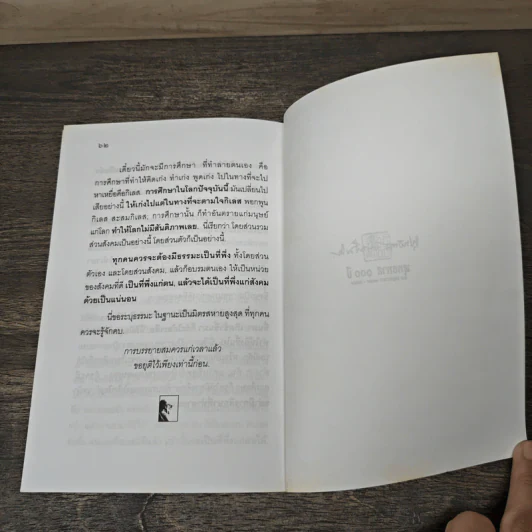 ๖๒
เดี๋ยวนี้มักจะมีการศึกษา ที่ทำลายตนเอง คือ
การศึกษาที่ทำให้คิดเก่ง ทำเก่ง พูดเก่ง ไปในทางที่จะไป
หาเหยื่อคือกิเลส. การศึกษาในโลกปัจจุบันนี้ มันเปลี่ยนไป
เสียอย่างนี้ ให้เก่งไปแต่ในทางที่จะตามใจกิเลส พอกพูน
กิเลส สะสมกิเลส, การศึกษานั้น ก็ทำอันตรายแก่มนุษย์
แก่โลก ทำให้โลกไม่มีสันติภาพเลย. นี่เรียกว่า โดยส่วนรวม
ส่วนสังคมเป็นอย่างนี้ โดยส่วนตัวก็เป็นอย่างนี้.
ทุกคนควรจะต้องมีธรรมะเป็นที่พึ่ง ทั้งโดยส่วน
ตัวเอง และโดยส่วนสังคม, แล้วก็อบรมตนเอง ให้เป็นหน่วย
ของสังคมที่ดี เป็นที่พึ่งแก่ตน, แล้วจะได้เป็นที่พึ่งแก่สังคม
ด้วยเป็นแน่นอน
นี่ขอระบุธรรมะ ในฐานะเป็นมิตรสหายสูงสุด ที่ทุกคน
ควรจะรู้จักคบ.
การบรรยายสมควรแก่เวลาแล้ว
ขอยุติไว้เพียงเท่านี้ก่อน.